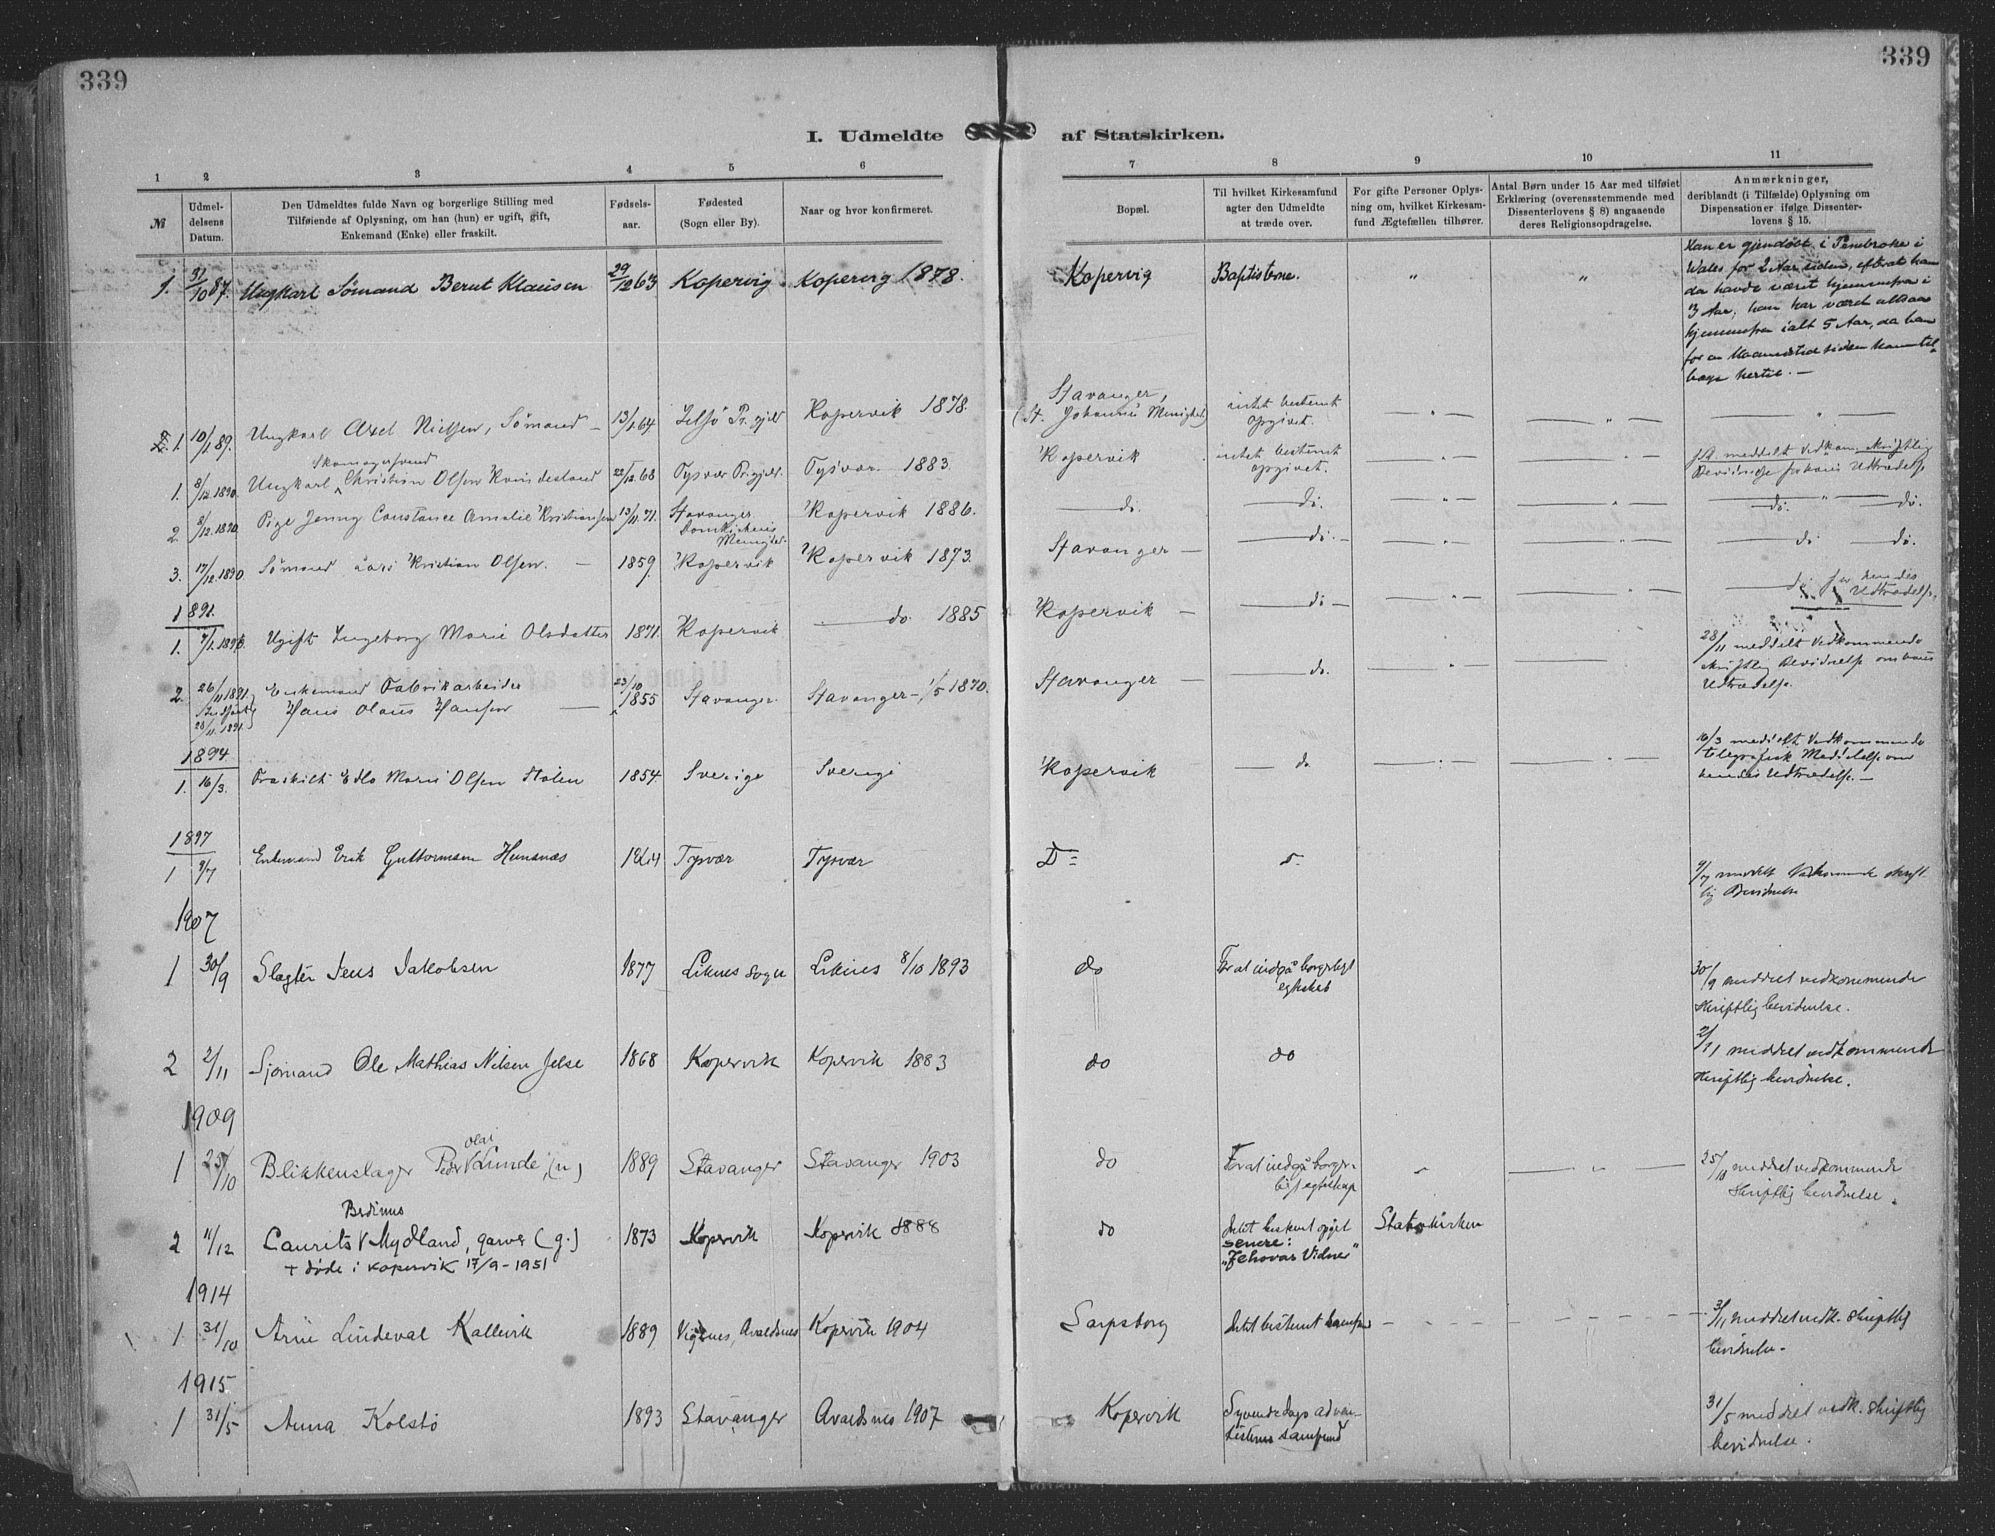 339 339
I. Udmeldte af Statskirken.
1 2 3 4 5 6 7 8 9 10 11
№
Udmeldelsens Datum.
Den Udmeldtes fulde Navn og borgerlige Stilling med
Tilføiende af Oplysning, om han (hun) er ugift, gift,
Enkemand (Enke) eller fraskilt.
Fødselsaar.
Fødested
(Sogn eller By).
Naar og hvor konfirmeret.
Bopæl.
Til hvilket Kirkesamfund
agter den Udmeldte
at træde over.
For gifte Personer Oplysning
om, hvilket Kirkesamfund
Ægtefællen tilhører.
Antal Børn under 15 Aar med tilføiet
Erklæring (overensstemmende med
Dissenterlovens § 8) angaaende
deres Religionsopdragelse.
Anmærkninger,
deriblandt (i Tilfælde) Oplysning om
Dispensationer ifølge Dissenterlovens
§ 15.
1. 31/10 87. Ungkarl Sømand Bernt Klausen 29/12 63 Kopervig Kopervig 1878. Kopervig Baptisterne. " "
Han er gjendøbt i Pembroke i
Wales for 2 Aar siden, efterat han
da havde været hjemmefra i
3 Aar; han har været altsaa
hjemmefra ialt 5 Aar, da han
for en Maanedstid siden kom til-
bage hertil. —
1. 10/1 89. Ungkarl Axel Nielsen, Sømand — 13/1 64 Jelsø Pr.gjeld Kopervik 1878. Stavanger, (St. Johannes Menighed) intet bestemt opgivet. " " "
1. 8/12 1890. Ungkarl Skomagersvend Christian Olsen Kvindesland 22/12 68 Tysvær Prgjeld. Tysvær. 1883. Kopervik intet bestemt opgivet. " "
meddelt Vedkom. skriftlig
Bevidnelse for hans Udtrædelse
2. 8/12 1890 Pige Jenny Constance Amalie Kristiansen 13/11 71. Stavanger Domkirkens Menighed. Kopervik 1886. do. do. " " do. " do.
3. 17/12 1890 Sømand Lars Kristian Olsen. — 1859. Kopervik Kopervik 1873. Stavanger — do. " " do do.
1891.
1. 7/1 Ugift Ingeborg Marie Olsdatter 1871. Kopervik do. 1885 Kopervik — do — " " do. for hendes Udtrædelse.
2. 26/11 1891. 28/11 1891. Enkemand Fabrikarbeider
Hans Olaus Hansen — 23/10 1855 Stavanger. Stavanger — 1/5 1870. Stavanger — do. " "
28/11 meddelt Vedkommende
skriftlig Bevidnelse om hans
Udtrædelse.
1894
1. 16/3. Fraskilt Edle Marie Olsen Stølen 1854. Sverige Sverige Kopervik do. " "
16/3 meddelt Vedkommende
telegrafisk Meddelelse om
hendes Udtrædelse. —
1897
1 9/7 Enkemand Erik Guttormsen Hensnæs Tysvær Tysvær D= d.
9/7 meddelt Vedkommende skriftlig
Bevidnelse
1907
1 30/9 Slagter Jens Jakobsen 1877 Liknes sogn Liknes 8/10 1893 do For at indgå borgerligt
egteskab
30/9 meddelt vedkommende
skriftlig bevidnelse.
2 2/11 Sjømand Ole Mathias Nilsen Jelse 1868 Kopervik Kopervik 1883 do do
2/11 meddelt vedkommende
skriftlig bevidnelse.
1909
1 25/10 Blikkenslager Peder Olai Lunde (u) 1889 Stavanger Stavanger 1903 do For at indgå borger-
ligt egteskap " "
25/10 meddelt vedkommende
skriftlig bevidnelse.
2 11/12 Laurits Bedinus Mydland, garver (g.) 1873 Kopervik Kopervik 1888 do
+ døde i Kopervik 17/9 - 1951
senere:
"Jehovas Vidner" Statskirken
1914
1. 31/10 Arne Lindeval Kallevik 1889 Vignes, Avaldsnes Kopervik 1904 Sarpsborg
3/11 meddelt vedk. skriftlig
bevidnelse.
1915
1 31/5 Anna Kolstø 1893 Stavanger Avaldsnes 1907 Kopervik Syvendedags adven-
tisternes samfund
31/5 meddelt vedk. skriftlig
bevidnelse.